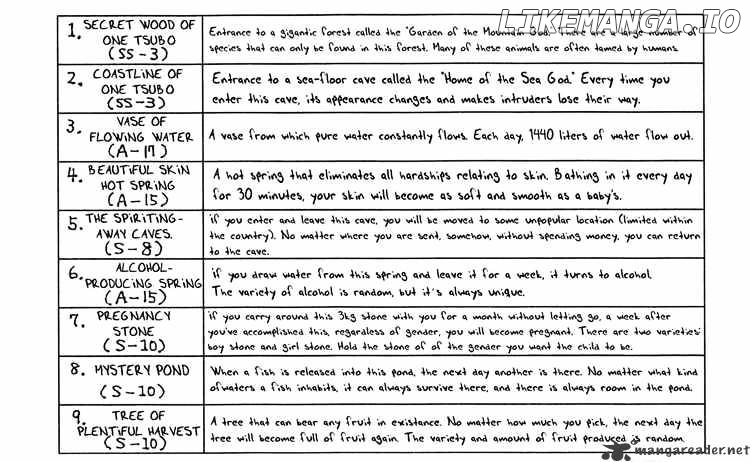 LIKEMANGA.IO
1. SECRET WOOD OF
ONE TSUBO
(SS-3)
Entrance to a gigantic forest called the "Garden of the Mountain God." There are a large number of
species that can only be found in this forest. Many of these animals are often tamed by humans.
2. COASTLINE OF
ONE TSUBO
(SS-3)
Entrance to a sea-floor cave called the "Home of the Sea God." Every time you
enter this cave, its appearance changes and makes intruders lose their way.
3. VASE OF
FLOWING WATER
(A-17)
A vase from which pure water constantly flows. Each day, 1440 liters of water flow out.
4. BEAUTIFUL SKIN
HOT SPRING
(A-15)
A hot spring that eliminates all hardships relating to skin. Bathing in it every day
for 30 minutes, your skin will become as soft and smooth as a baby's.
5. THE SPIRITING-
AWAY CAVES.
(S-8)
if you enter and leave this cave, you will be moved to some unpopular location (limited within
the country). No matter where you are sent, somehow, without spending money, you can return
to the cave.
6. ALCOHOL-
PRODUCING SPRING
(A-15)
if you draw water from this spring and leave it for a week, it turns to alcohol.
The variety of alcohol is random, but it's always unique.
7. PREGNANCY
STONE
(S-10)
if you carry around this 3kg stone with you for a month without letting go, a week after
you've accomplished this, regardless of gender, you will become pregnant. There are two varieties:
boy stone and girl stone. Hold the stone of of the gender you want the child to be.
8. MYSTERY POND
(S-10)
When a fish is released into this pond, the next day another is there. No matter what kind
of waters a fish inhabits, it can always survive there, and there is always room in the pond.
9. TREE OF
PLENTIFUL HARVEST
(S-10)
A tree that can bear any fruit in existance. No matter how much you pick, the next day the
tree will become full of fruit again. The variety and amount of fruit produced is random.
mangareader.net